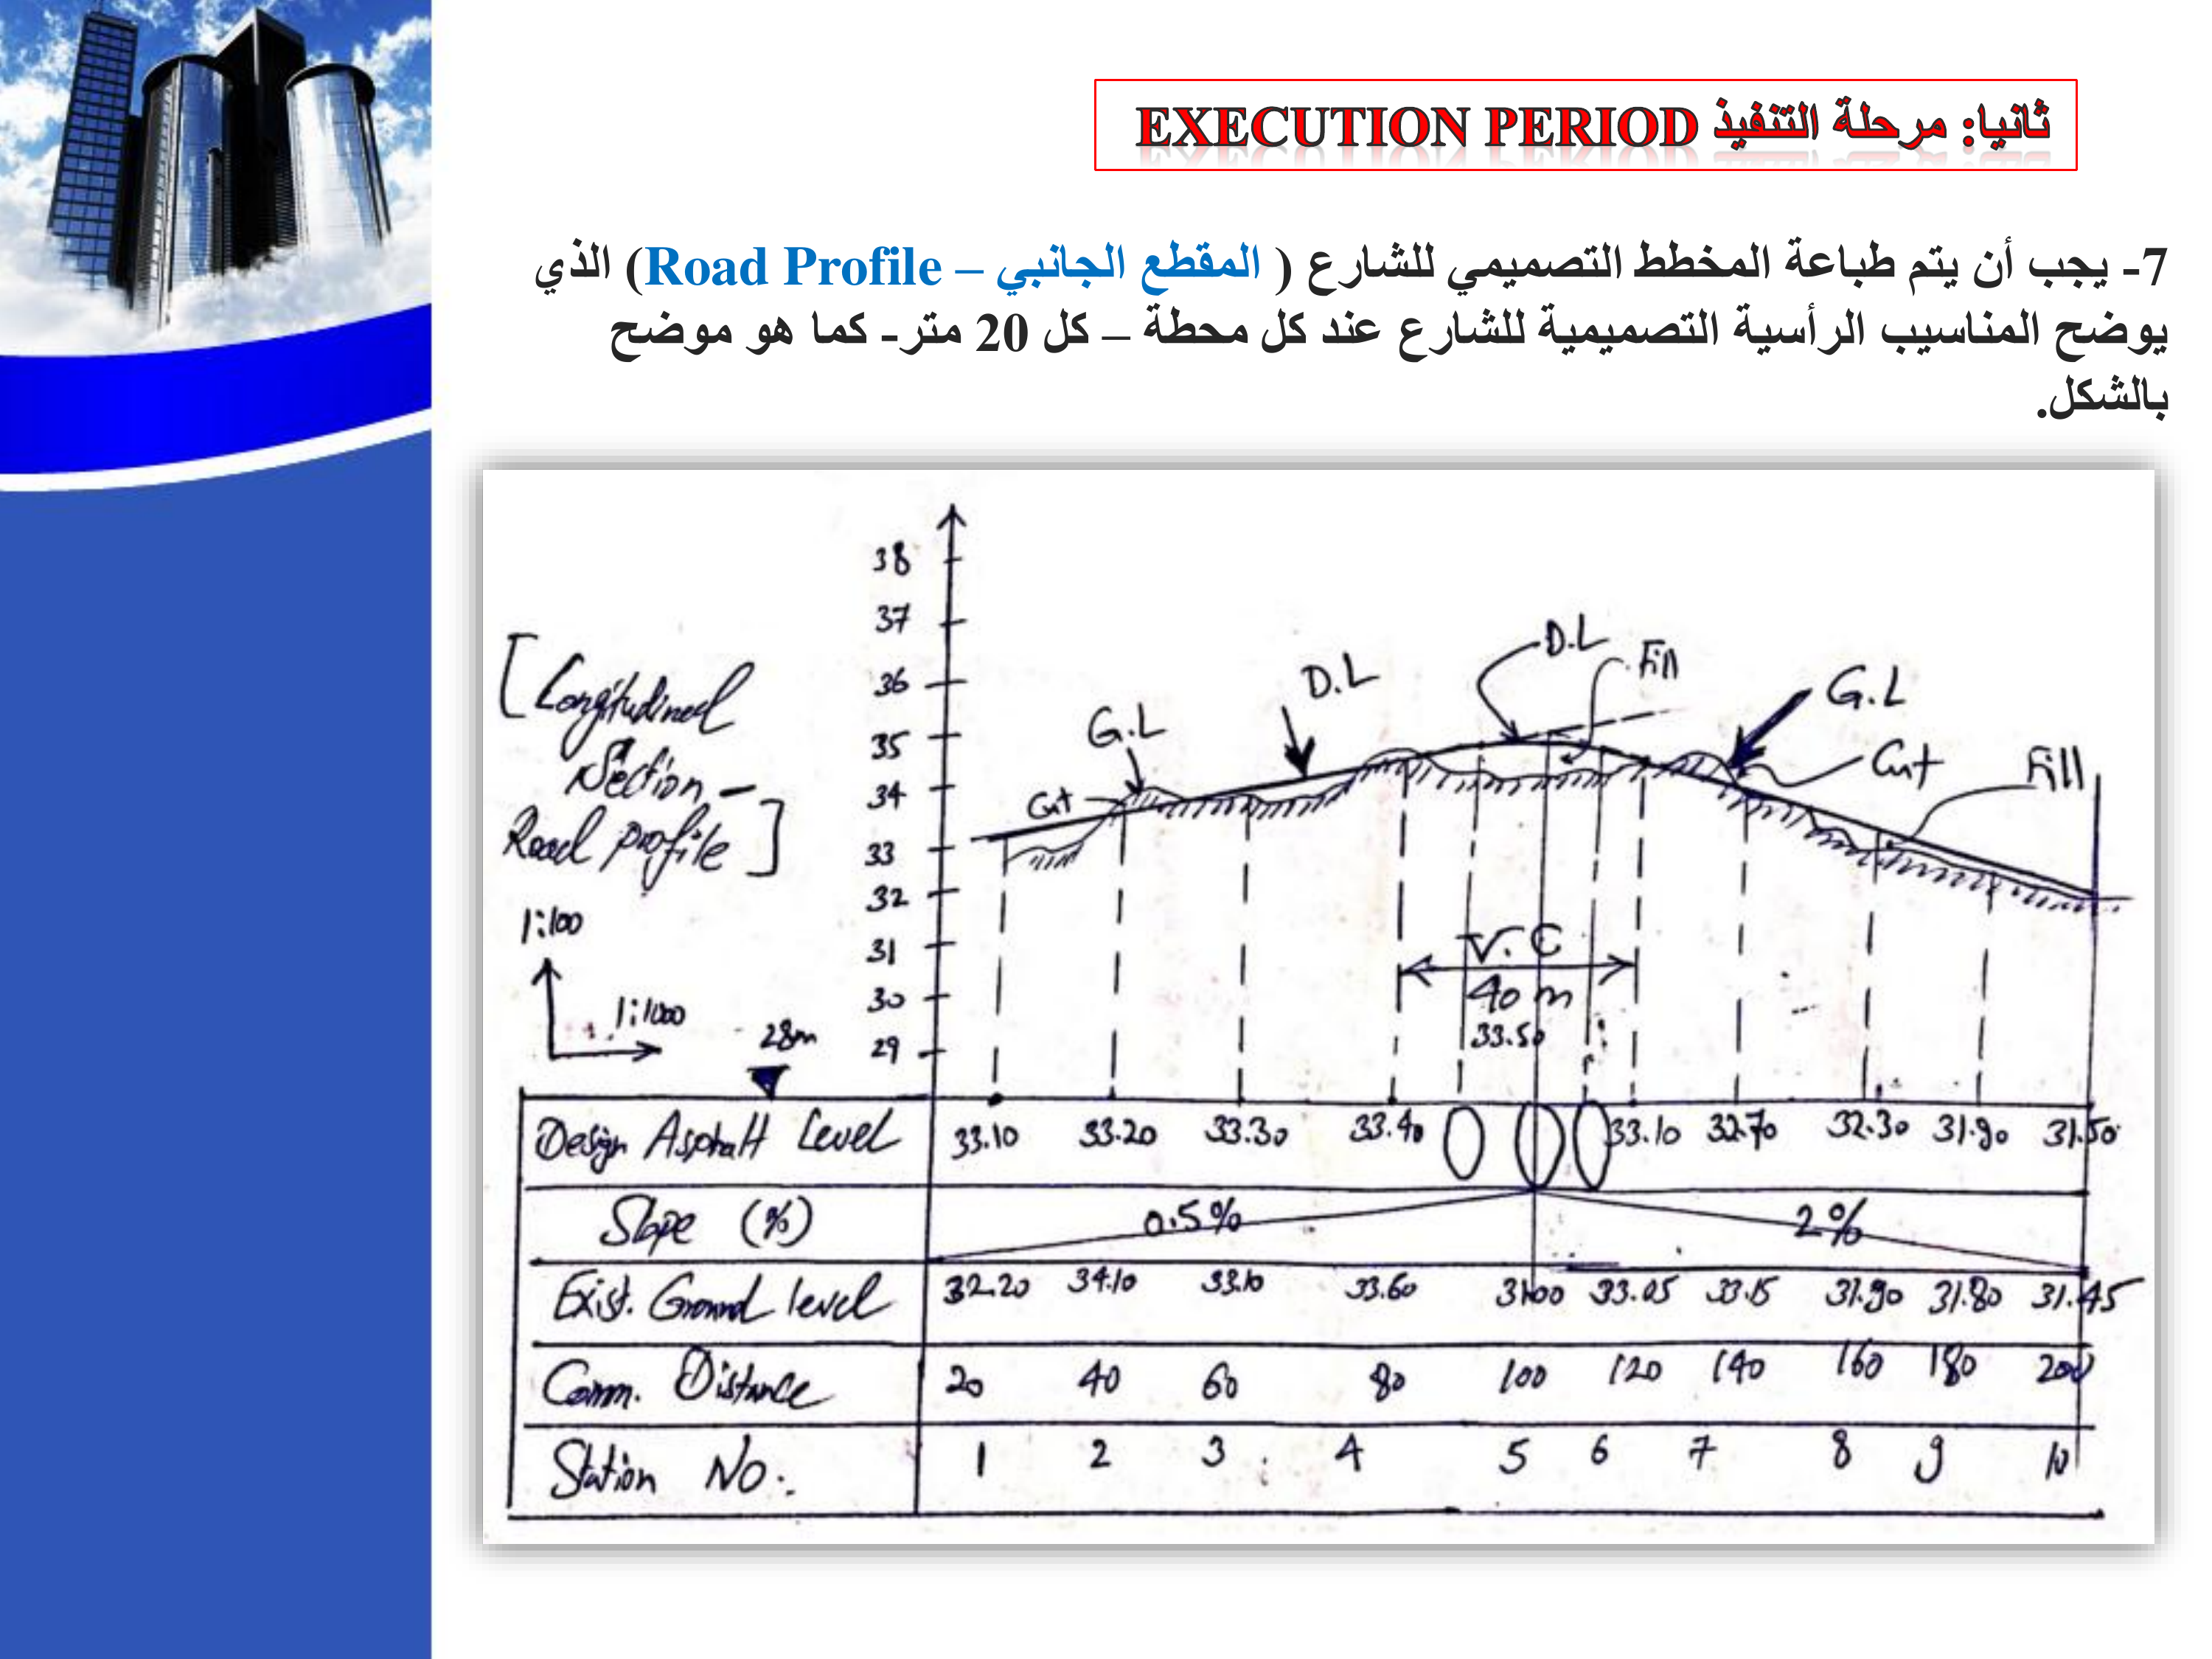 ثانيا: مرحلة التنفيذ EXECUTION PERIOD
7- يجب أن يتم طباعة المخطط التصميمي للشارع ( المقطع الجانبي – Road Profile) الذي
يوضح المناسيب الرأسية التصميمية للشارع عند كل محطة – كل 20 متر- كما هو موضح
بالشكل.
38
37
36
35
34
33
32
31
30
29
[Longitudinal
Section -
Road profile]
1:100
1:1000
28m
G.L
Cut
D.L
D.L
Fill
G.L
Cut
Fill
V.C
40 m
33.50
Design Asphalt Level 33.10 33.20 33.30 33.40 33.10 32.70 32.30 31.90 31.50
Slope (%) 0.5% 2%
Exist. Ground level 32.20 34.10 33.10 33.60 31.00 33.05 33.15 31.90 31.80 31.45
Comm. Distance 20 40 60 80 100 120 140 160 180 200
Station No. 1 2 3 4 5 6 7 8 9 10